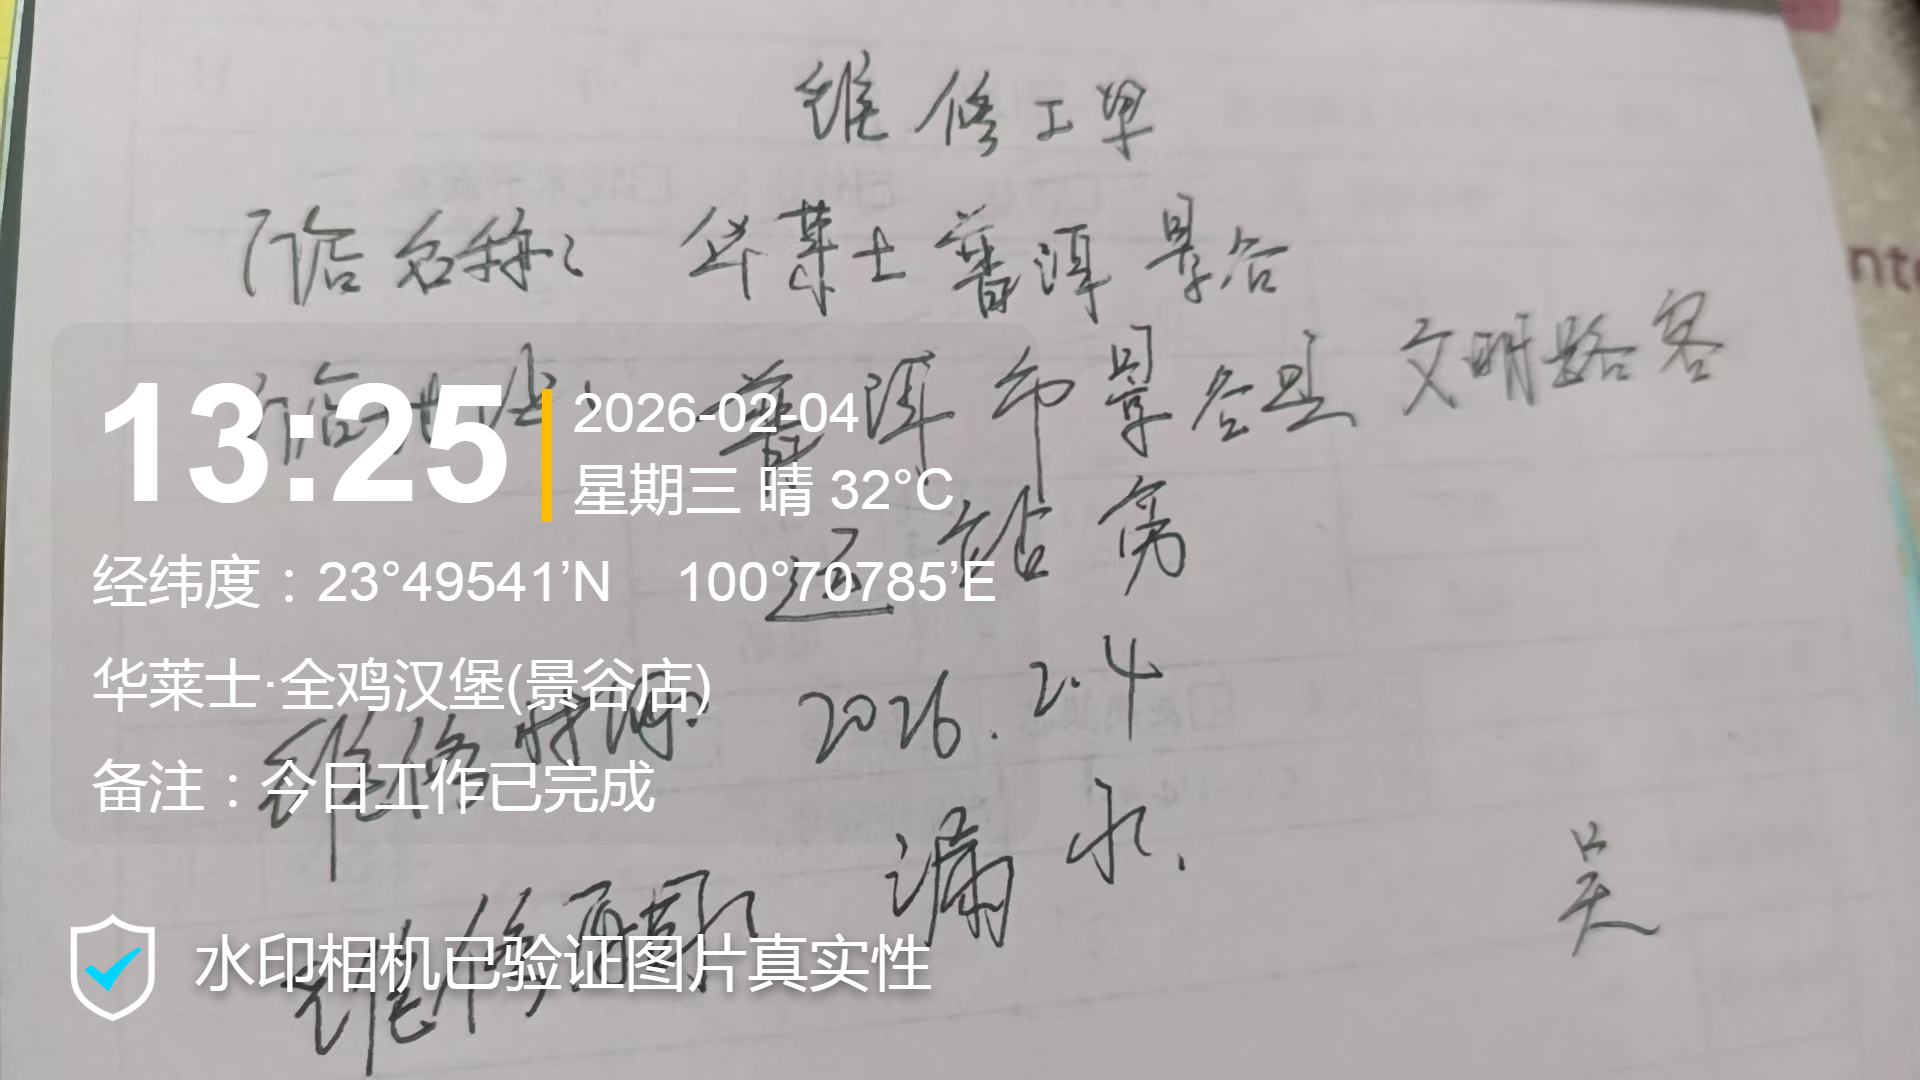 维修工单
门店名称: 华莱士普洱景谷
门店地址: 普洱市景谷县文明路客
运站旁
维修时间: 2026.2.4
维修 漏水.
吴
13:25
2026-02-04
星期三 晴 32°C
经纬度：23°49541’N 100°70785’E
华莱士·全鸡汉堡(景谷店)
备注：今日工作已完成
水印相机已验证图片真实性
nte